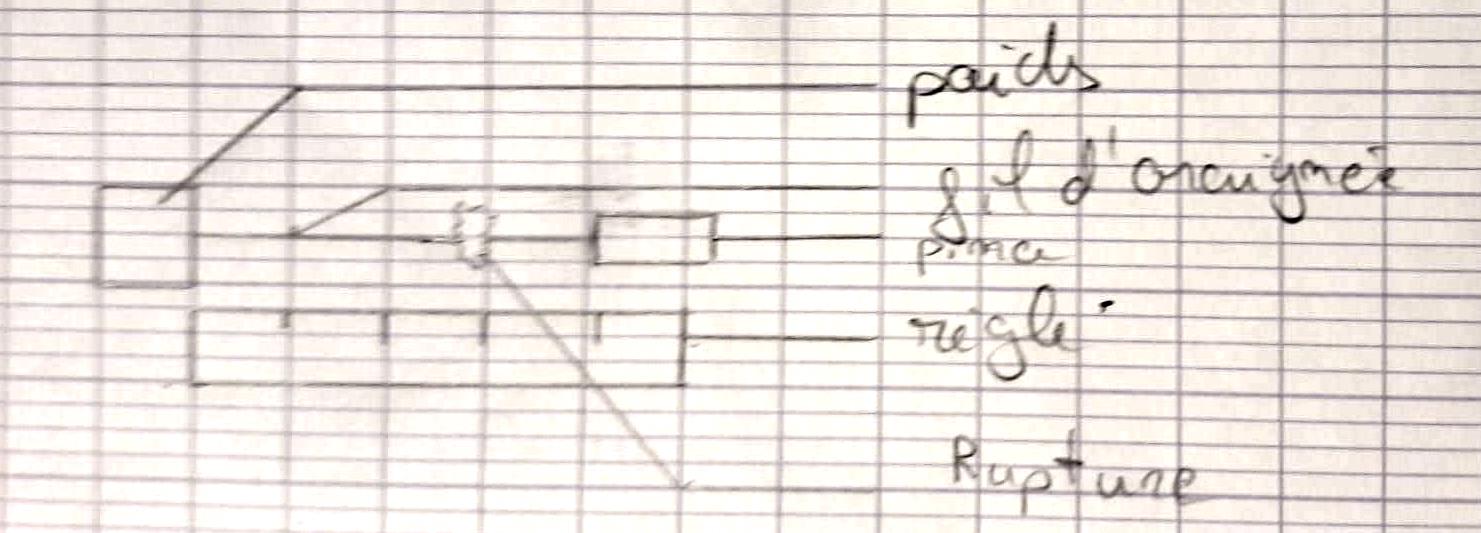 poids
fil d'araignée
pince
règle
Rupture